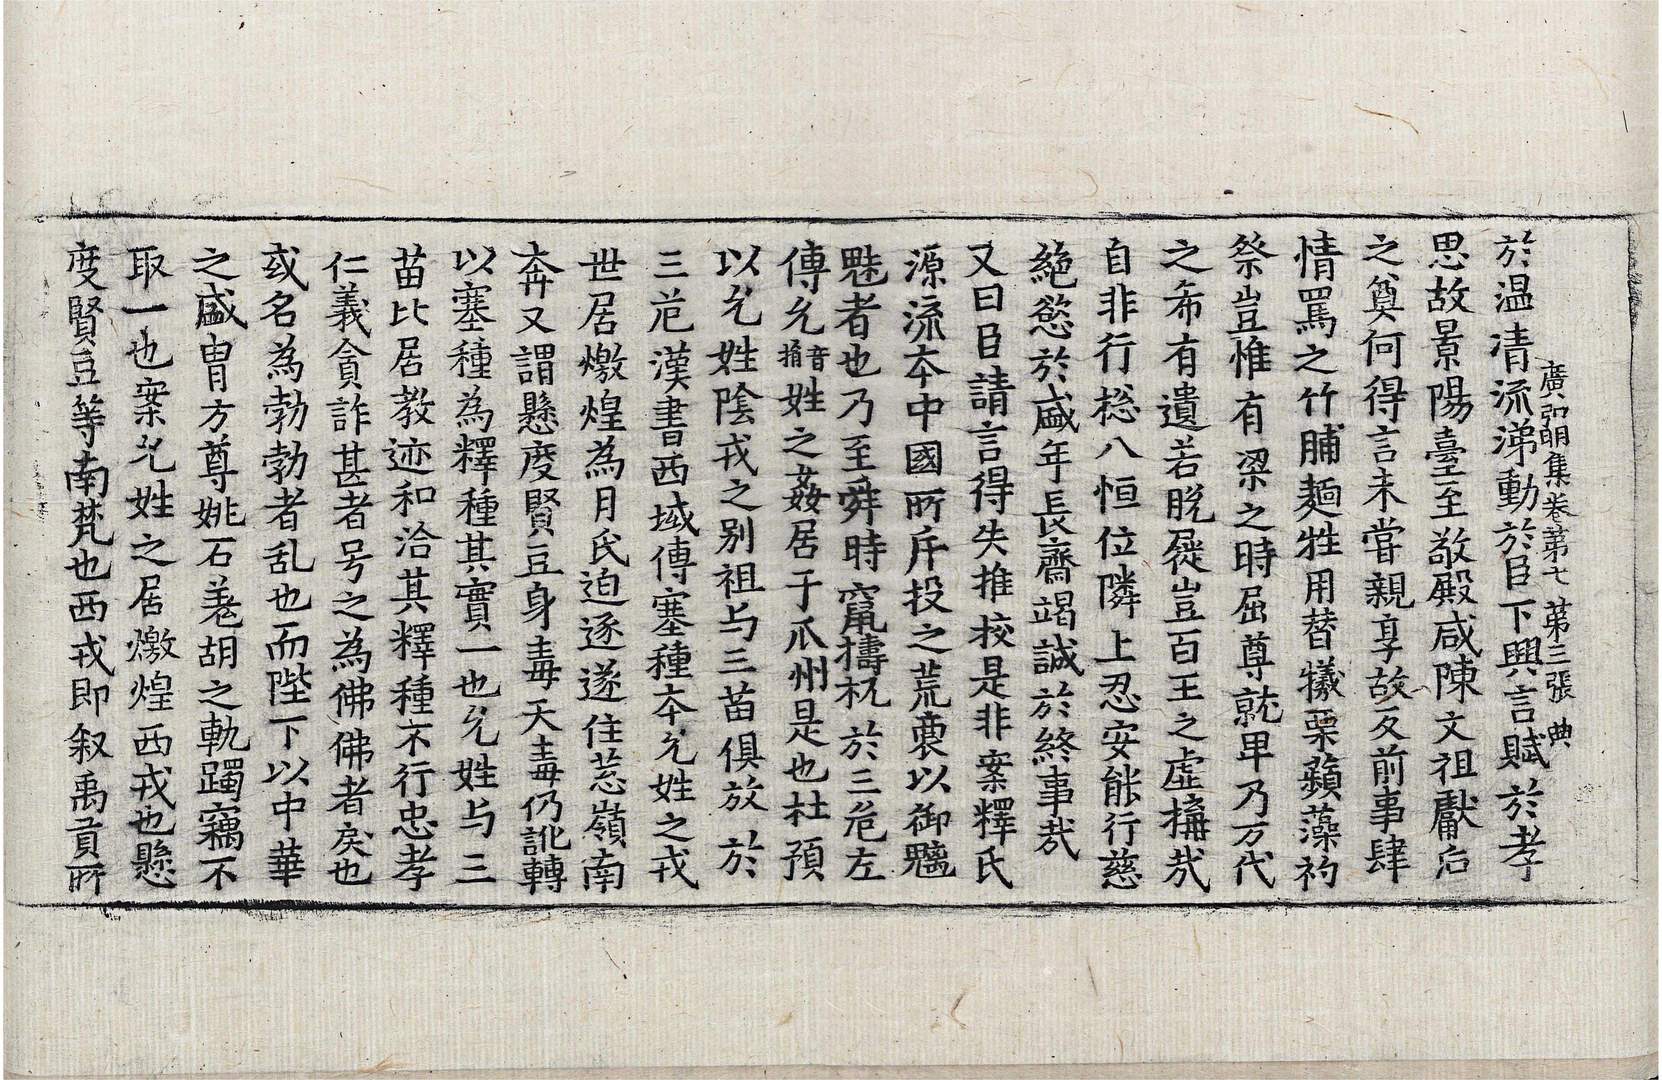 廣弘明集卷第七 第三張 典
於温清流涕動於臣下興言賦於孝
思故景陽臺至敬殿咸陳文祖獻后
之奠何得言未嘗親享故反前事肆
情罵之竹脯麵牲用替犧栗蘋藻礿
祭豈惟有梁之時屈尊就卑乃万代
之希有遺若脫屣豈百王之虛搆㢤
自非行揔八恒位隣上忍安能行慈
絕慾於盛年長齋竭誠於終事㢤
又曰臣請言得失推挍是非案釋氏
源流本中國所斥投之荒裔以御魑
魅者也乃至舜時竄檮杌於三危左
傳允音捐姓之姦居于瓜州是也杜預
以允姓陰戎之別祖与三苗俱放於
三危漢書西域傳塞種本允姓之戎
世居燉煌為月氏迫逐遂住葱嶺南
奔又謂懸度賢豆身毒天毒仍訛轉
以塞種為釋種其實一也允姓与三
苗比居教迹和洽其釋種不行忠孝
仁義貪詐甚者号之為佛佛者戾也
或名為勃勃者乱也而陛下以中華
之盛冑方尊姚石羌胡之軌躅竊不
取一也案允姓之居燉煌西戎也懸
度賢豆等南梵也西戎即叙禹貢所